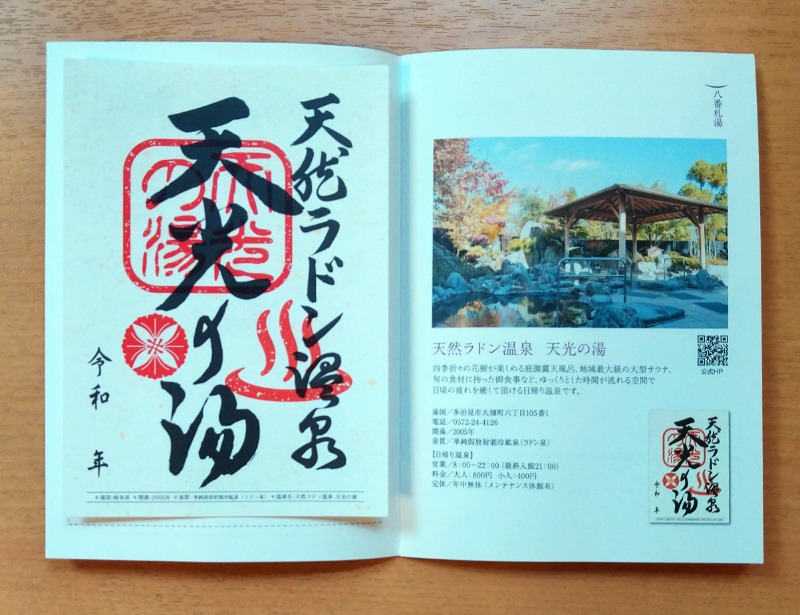 天然ラドン温泉
天光の湯
令和 年
＊湯国：岐阜県 ＊開湯：2005年 ＊泉質：単純弱放射能冷鉱泉（ラドン泉） ＊温泉名：天然ラドン温泉 天光の湯
八番札湯
天然ラドン温泉 天光の湯
四季折々の花樹が楽しめる庭園露天風呂、地域最大級の大型サウナ、
旬の食材に拘った御食事など、ゆっくりとした時間が流れる空間で
日頃の疲れを癒して頂ける日帰り温泉です。
湯国／多治見市大畑町六丁目105番1
電話／0572-24-4126
開湯／2005年
泉質／単純弱放射能冷鉱泉（ラドン泉）
【日帰り温泉】
営業／8：00～22：00（最終入館21：00）
料金／大人：800円 小人：400円
定休／年中無休（メンテナンス休館有）
公式HP
天然ラドン温泉
天光の湯
令和 年